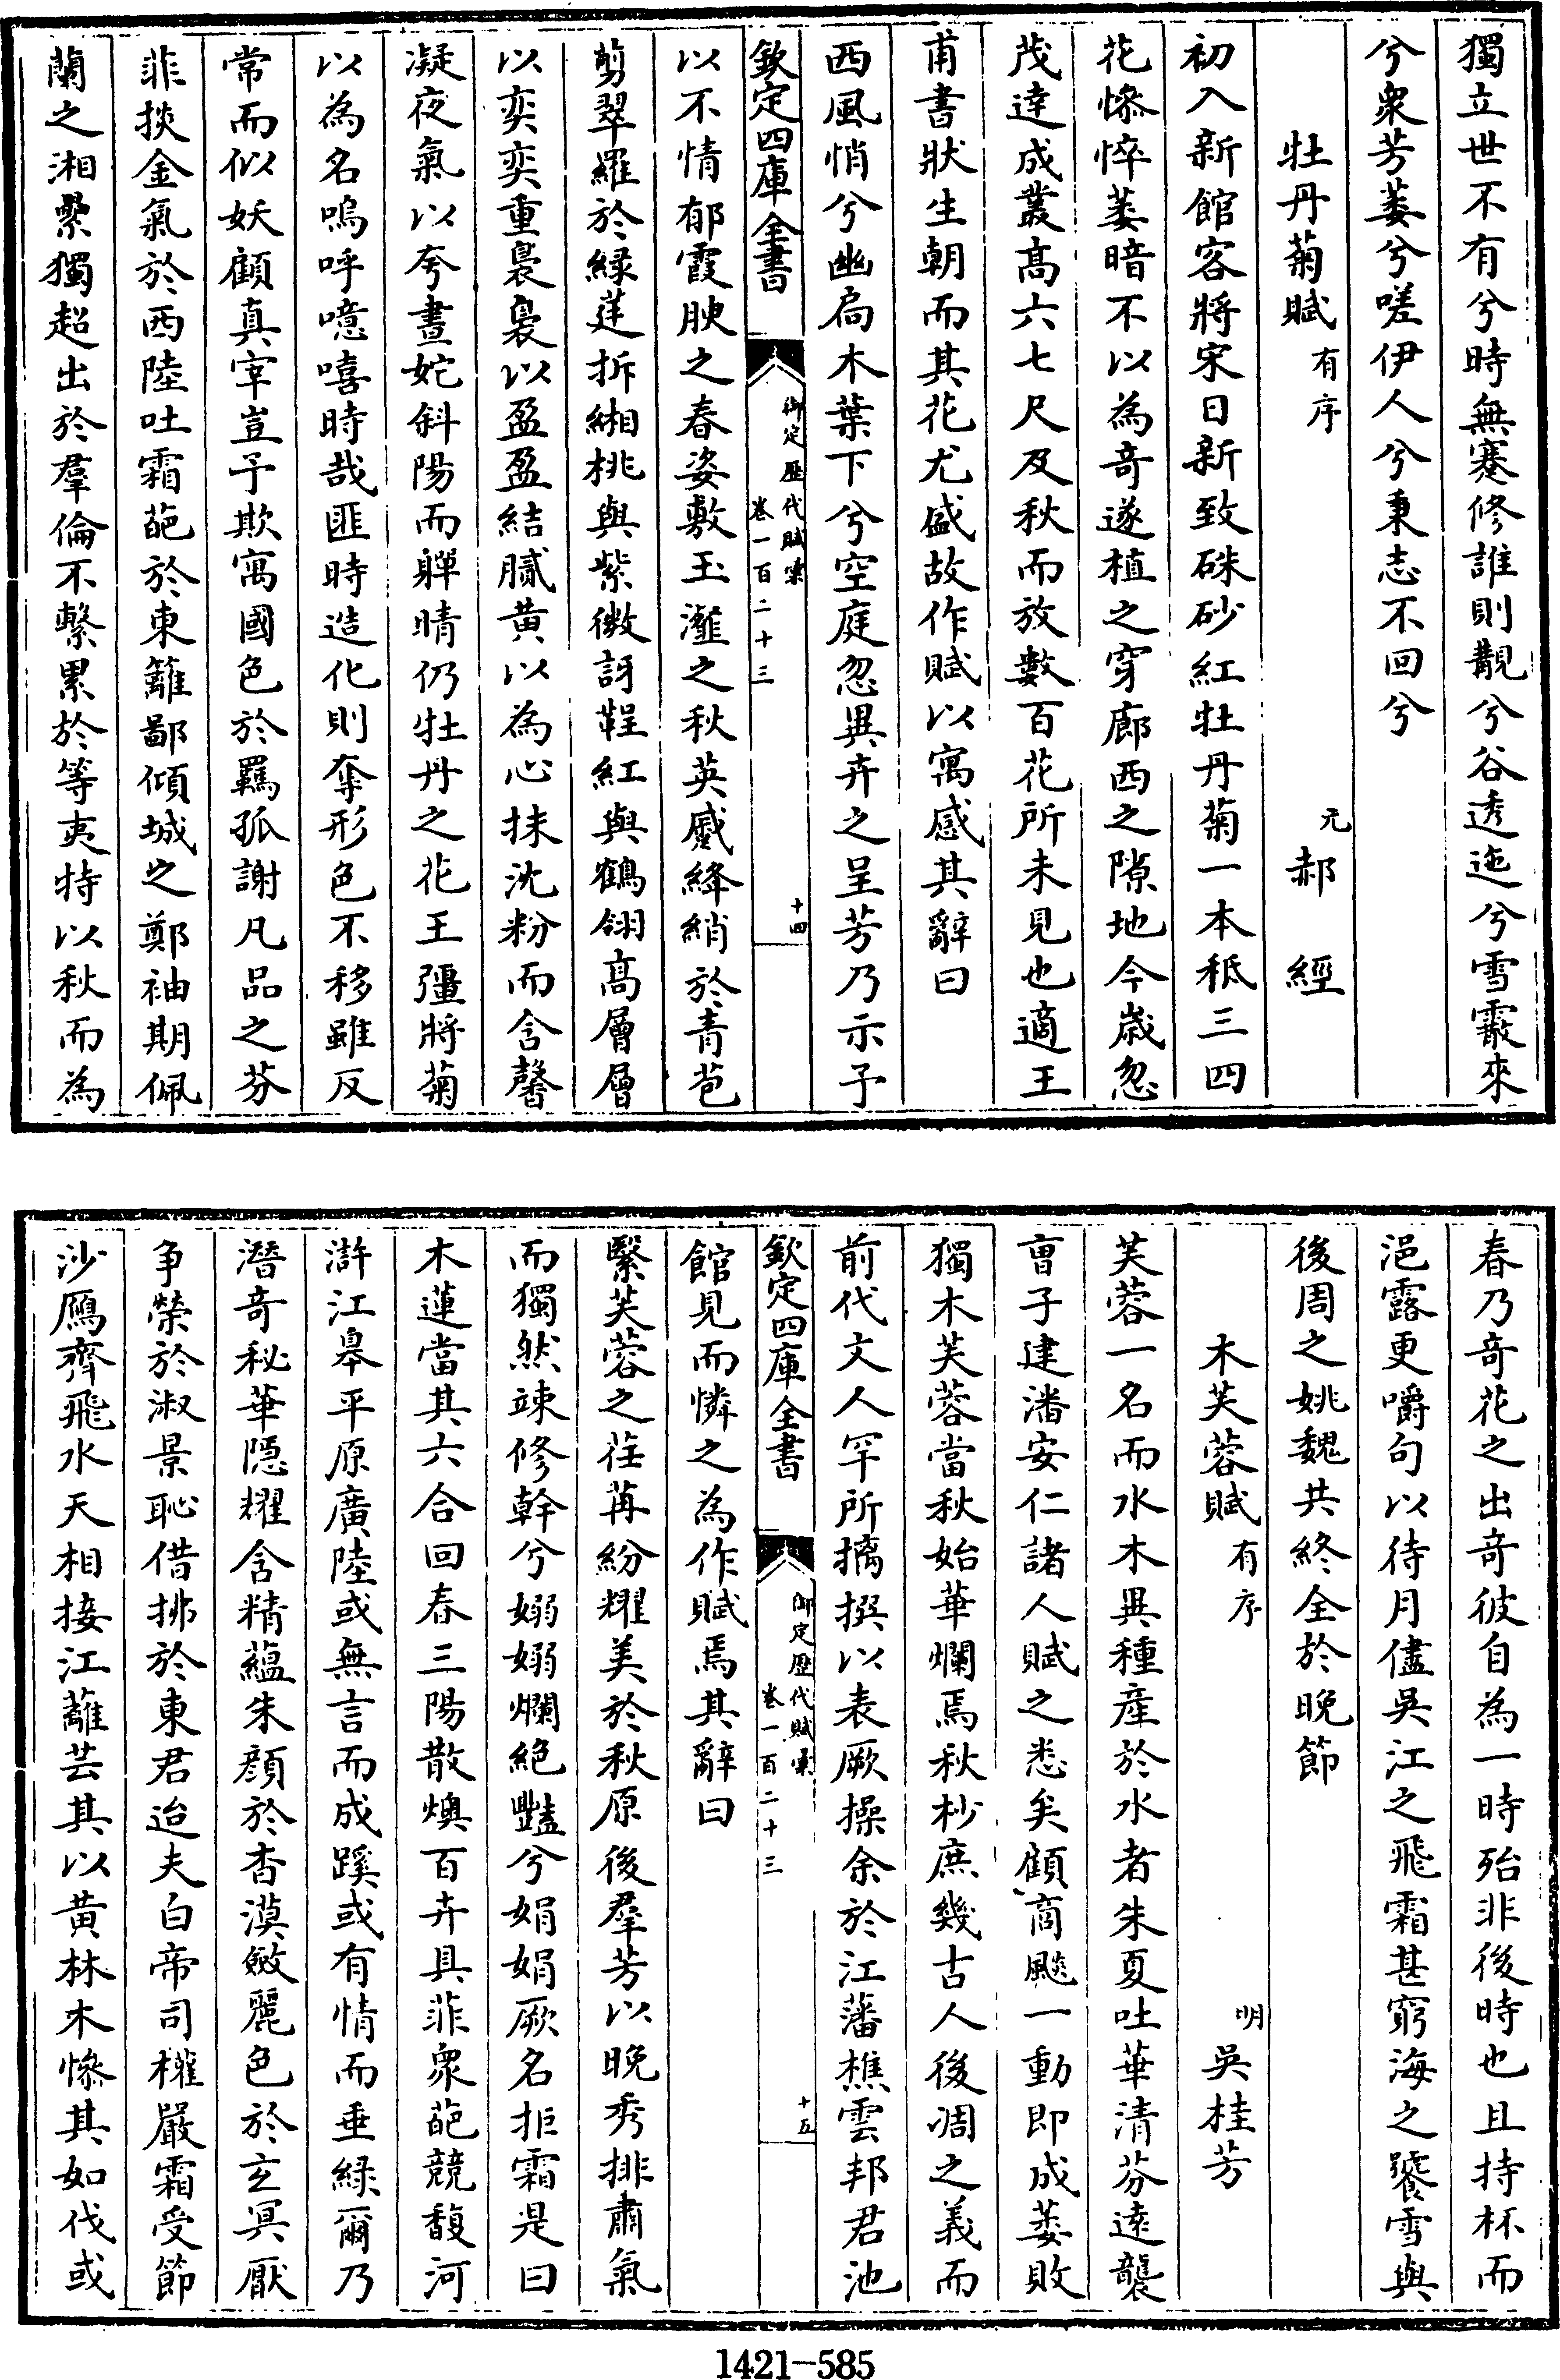 獨立世不有兮時無蹇修誰則覯兮谷透迤兮雪霰來
兮衆芳萎兮嗟伊人兮秉志不回兮
牡丹菊賦有序　元郝經
初入新館客將宋日新致硃砂紅牡丹菊一本秪三四
花慘悴萎暗不以為竒遂植之穿廊西之隙地今嵗忽
茂達成叢髙六七尺及秋而放數百花所未見也適王
甫書狀生朝而其花尤盛故作賦以寓感其辭曰
西風悄兮幽扃木葉下兮空庭忽異卉之呈芳乃示予
欽定四庫全書　御定歷代賦彙　卷一百二十三　十四
以不情郁霞腴之春姿敷玉蕹之秋英蹙絳綃於青苞
剪翠羅於緑莛拆緗桃與紫微訝鞓紅與鶴翎髙層層
以奕奕重裊裊以盈盈結膩黄以為心抹沈粉而含馨
凝夜氣以夸晝妵斜陽而軃晴仍牡丹之花王彊將菊
以為名嗚呼噫嘻時哉匪時造化則奪形色不移雖反
常而似妖顧真宰豈予欺寓國色於羈孤謝凡品之芬
菲掞金氣於西陸吐霜葩於東籬鄙傾城之鄭袖期佩
蘭之湘纍獨超出於羣倫不繫累於等夷特以秋而為
春乃竒花之出竒彼自為一時殆非後時也且持杯而
浥露更嚼句以待月儘吳江之飛霜甚窮海之饕雪與
後周之姚魏共終全於晚節
木芙蓉賦有序　明吳桂芳
芙蓉一名而水木異種産於水者朱夏吐華清芬逺襲
曺子建潘安仁諸人賦之悉矣顧商飈一動即成萎敗
獨木芙蓉當秋始華爛焉秋杪庶幾古人後凋之義而
前代文人罕所摛撰以表厥操余於江藩樵雲邦君池
欽定四庫全書　御定歷代賦彙　卷一百二十三　十五
館見而憐之為作賦焉其辭曰
緊芙蓉之荏苒紛耀美於秋原後羣芳以晚秀排肅氣
而獨然竦修幹兮嫋嫋爛絶豔兮娟娟厥名拒霜是曰
木蓮當其六合回春三陽散燠百卉具菲衆葩競馥河
滸江臯平原廣陸或無言而成蹊或有情而垂緑爾乃
潛竒秘華隠耀含精蘊朱顔於杳漠斂麗色於玄冥厭
争榮於淑景恥借拂於東君迨夫白帝司權嚴霜受節
沙鴈齊飛水天相接江蘺芸其以黄林木慘其如伐或
1421-585